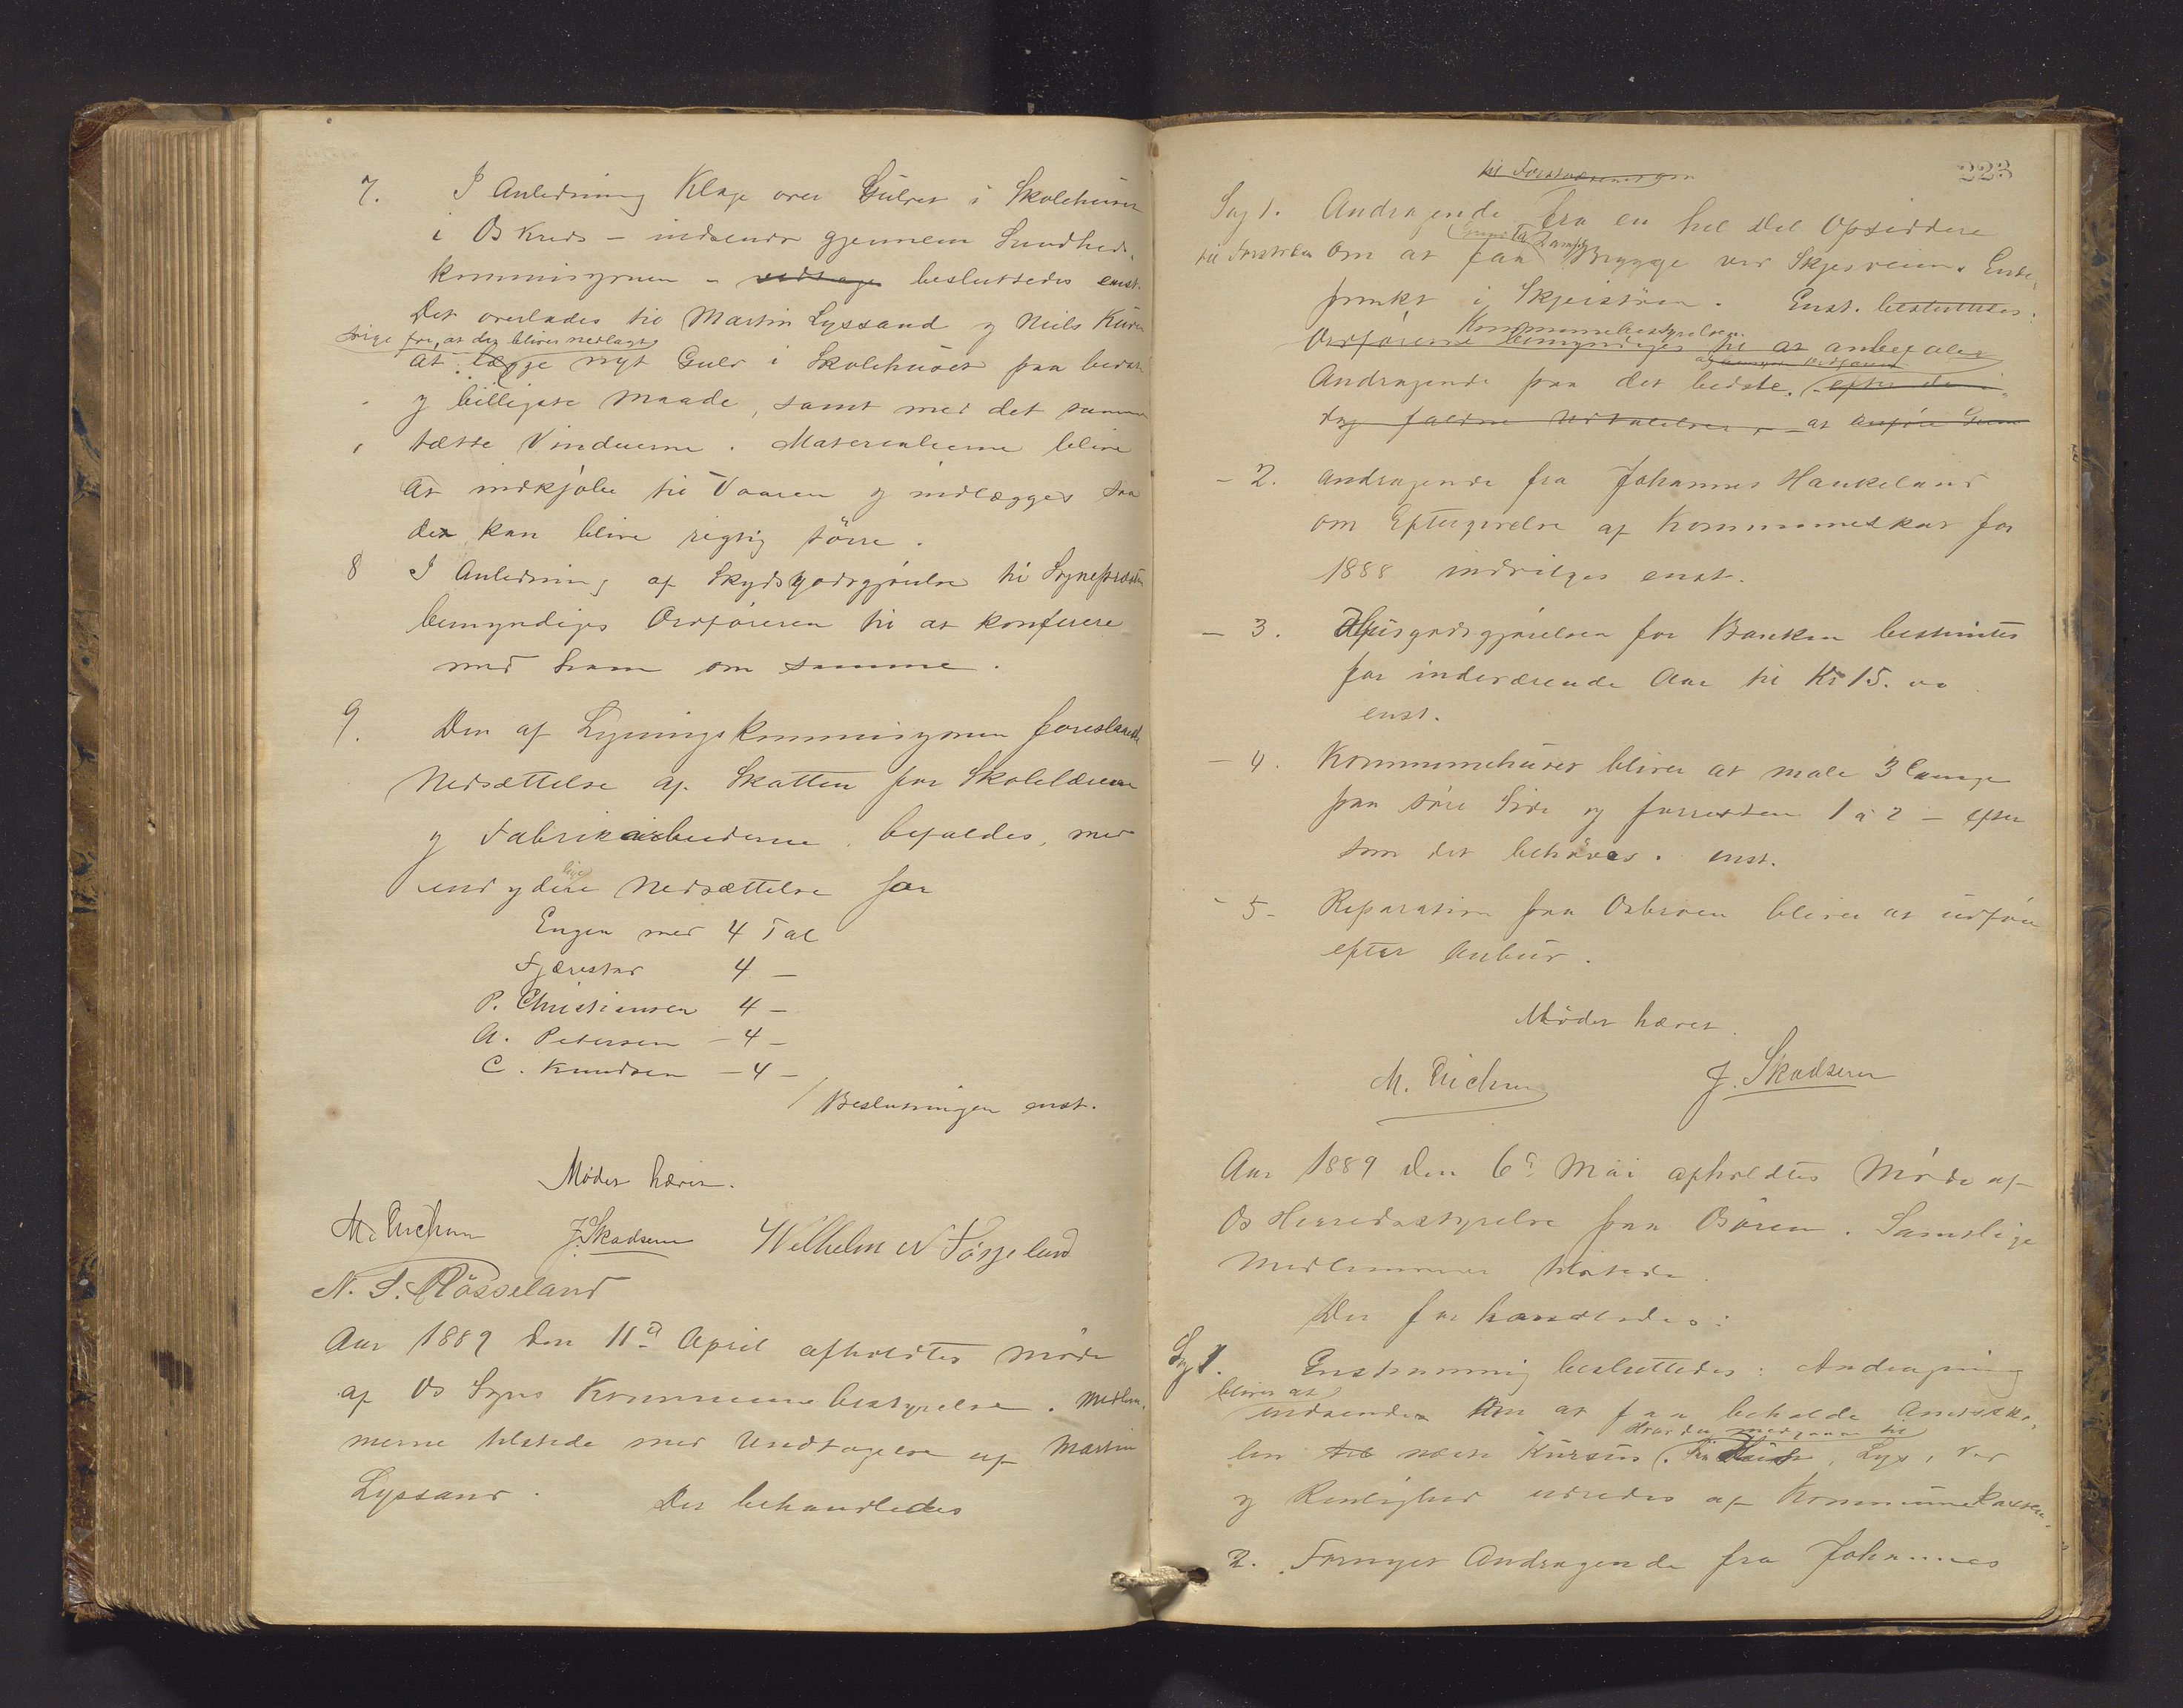 7. I Anledning Klage over Gulvet i Skolehuset
i Os Kreds – indsendt gjennem Sundheds-
kommisjonen – vedtages besluttedes enst.
Det overlades til Martin Lyssand og Niels Kuven
sørge for, at der bliver nedlagt
at lægge nyt Gulv i Skolehuset paa bedste
og billigste Maade, samt med det samme
tætte Vinduerne. Materialierne blive
at indkjøbe til Vaaren og indlægges saa
de kan blive rigtig törre.
8 I Anledning af Skydsgodtgjørelse til Sognepræsten
bemyndiges Ordføreren til at konferere
med ham om samme.
9. Den af Ligningskommisjonen foreslaaede
Nedsættelse af Skatten for Skolelærerne
og Fabrikarbeiderne befaldes, med
end ydere Nedsættelse for
Engen med 4 Tal
Fjærestad 4 –
P. Christiansen 4 –
A. Petersen – 4 –
C. Knudsen – 4 –
/ Beslutningen enst.
Mødet hævet.
J. Skadsem Wilhelm N Försjelund
N. S. Røsseland
Aar 1889 den 11te April afholdtes Møde
af Os Sogns Kommunebestyrelse. Medlem-
merne tilstede med Undtagelse af Martin
Lyssand. Der behandledes
223
til Forstvæsenet om
Sag 1. Andragende fra en hel Del Opsiddere
til Amtet om at faa Brygge ved Skjesveiens Ende-
punkt i Skjeistöen. Enst. besluttes:
Kommunebestyrelsen
Ordføreren bemyndiges til at anbefaler
Andragende paa det bedste. efter de i
dag faldne Udtalelser, – at
– 2. Andragende fra Johannes Haukeland
om Eftergivelse af Kommuneskat for
1888 indvilges enst.
– 3. Husgodtgjørelsen for Banken bestemtes
for indeværende Aar til Kr 15.00
enst.
– 4. Kommunehuset bliver at male 3 Gange
paa søre Side og forresten 1 à 2 – efter
som det behøves. enst.
– 5 – Reparation paa Osbroen bliver at udføre
efter Anbud.
Mødet hævet.
J. Skadsem
Aar 1889 den 6te Mai afholdtes Møde af
Os Herredsstyrelse paa Osøren. Samtlige
Medlemmer tilstede.
Der forhandledes:
Sag 1. Enstemmig besluttedes: Andragning
bliver at
indsende om at faa beholde Amtssko-
Hvad der medgaar til
len til næste Kursus. Hus, Lys, Ved
og Renlighed udredes af Kommunekassen.
2. Fornyet Andragende fra Johannes